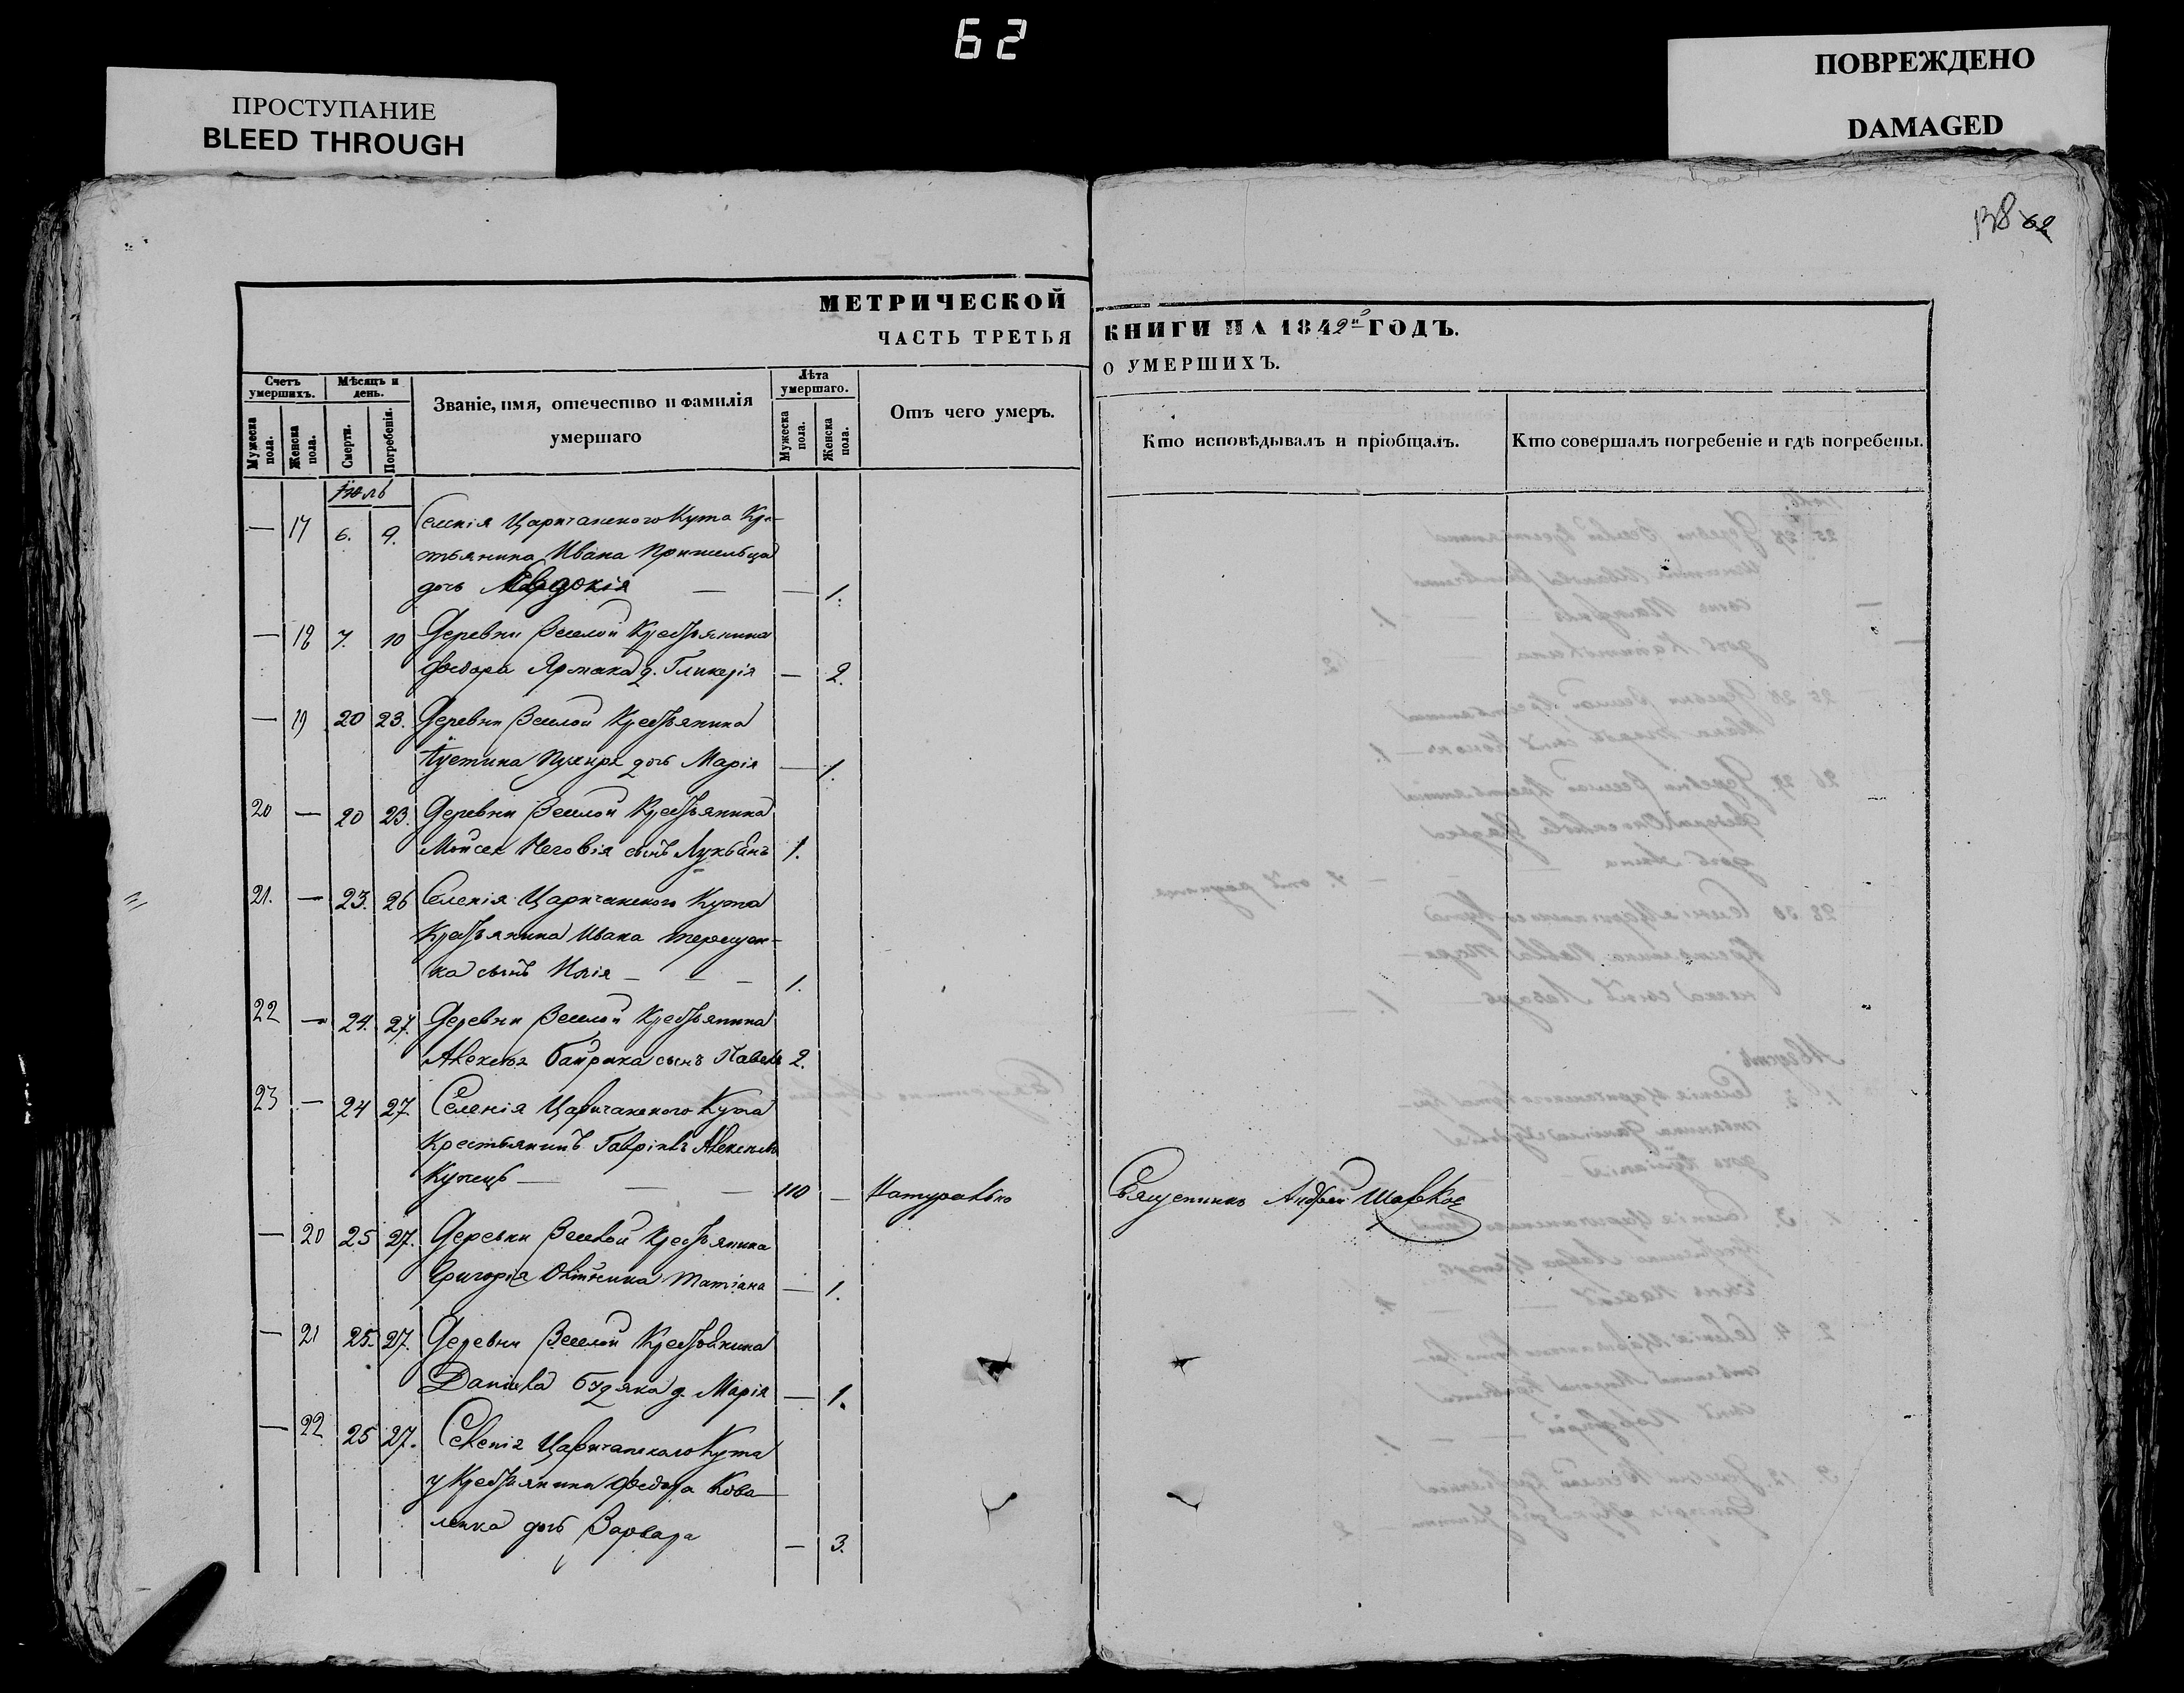 62
ПРОСТУПАНИЕ
BLEED THROUGH
ПОВРЕЖДЕНО
DAMAGED
138 62
МЕТРИЧЕСКОЙ
ЧАСТЬ ТРЕТЬЯ
КНИГИ НА 1842й ГОДЪ.
О УМЕРШИХЪ.
Счетъ умершихъ.
Мѣсяцъ и день.
Званіе, имя, отечество и фамилія умершаго
Лѣта умершаго.
Отъ чего умеръ.
Кто исповѣдывалъ и пріобщалъ.
Кто совершалъ погребеніе и гдѣ погребены.
Мужеска пола.
Женска пола.
Смерти.
Погребенія.
Мужеска пола.
Женска пола.
Іюль
— 17 6. 9. Селенія Царичанского Кута Кре-
стьянина Ивана Пришельца
дочь Евдокія — — 1.
— 18 7. 10 Деревни Веселой Крестьянина
Феодора Ярмака д. Гликерія — 2.
— 19 20 23. Деревни Веселой Крестьянина
Іустина дочь Марія — 1.
20 — 20 23. Деревни Веселой Крестьянина
Мойсея сынъ 1.
21. — 23. 26 Селенія Царичанского Кута
Крестьянина Ивана Терещен-
ка сынъ Илія — — — 1.
22 — 24. 27. Деревни Веселой Крестьянина
Алексея Байрака сынъ Павелъ 2.
23 — 24 27 Селенія Царичанского Кута
Крестьянинъ Гавріилъ Алексеевъ
Купецъ — — — 110 — Натурально Священникъ Андрей
— 20 25 27. Деревни Веселой Крестьянина
Григорія Татіана — 1.
— 21 25. 27. Деревни Веселой Крестьянина
Даніила Будяка д. Марія — 1.
— 22 25 27. Селенія Царичанского Кута
у Крестьянина Феодора Кова-
ленка дочь Варвара — 3.